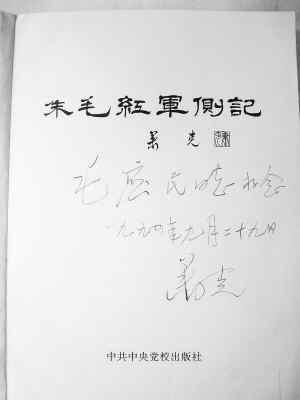 朱毛紅軍側記
萧克
毛宏民同志 纪念
一九九四年九月二十九日
萧克
中共中央党校出版社